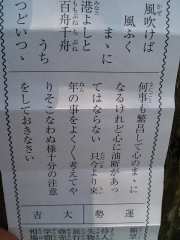 風吹けば
風ふく
まゝに
港よしと
百舟千舟
うち
つどいつゝ
何事も繁昌して心のまゝに
なるけれど心に油断があっ
てはならない 只今より来
年の事をよくよく考えてや
りそこなわぬ様十分の注意
をしておきなさい
運勢
大吉